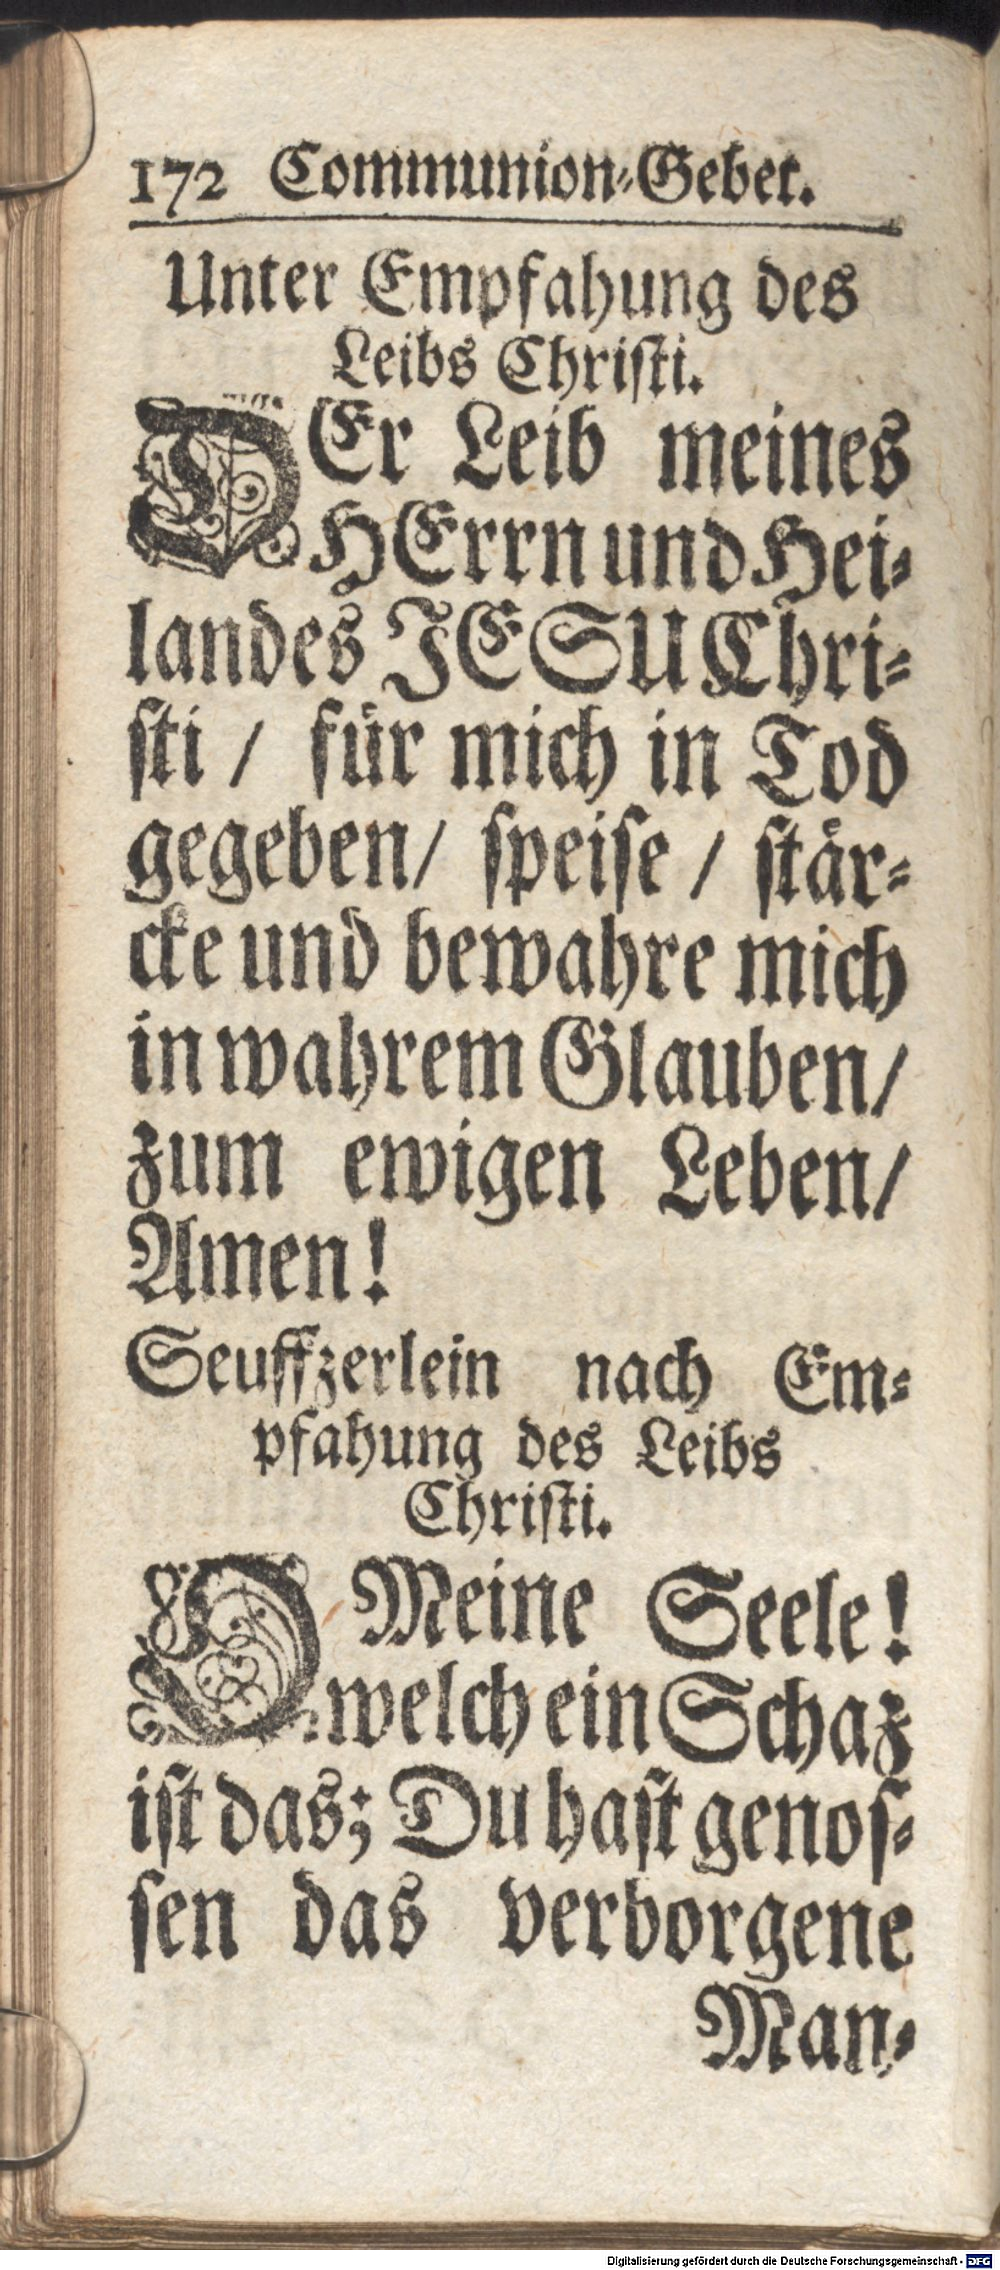 172 Communion-Gebet.
Unter Empfahung des
Leibs Christi.
DEr Leib meines
HErrn und Hei-
landes JESU Chri-
sti / für mich in Tod
gegeben / speise / stär-
cke und bewahre mich
in wahrem Glauben /
zum ewigen Leben /
Amen!
Seuffzerlein nach Em-
pfahung des Leibs
Christi.
O Meine Seele!
welch ein Schaz
ist das; Du hast genos-
sen das verborgene
Man-
Digitalisierung gefördert durch die Deutsche Forschungsgemeinschaft - DFG